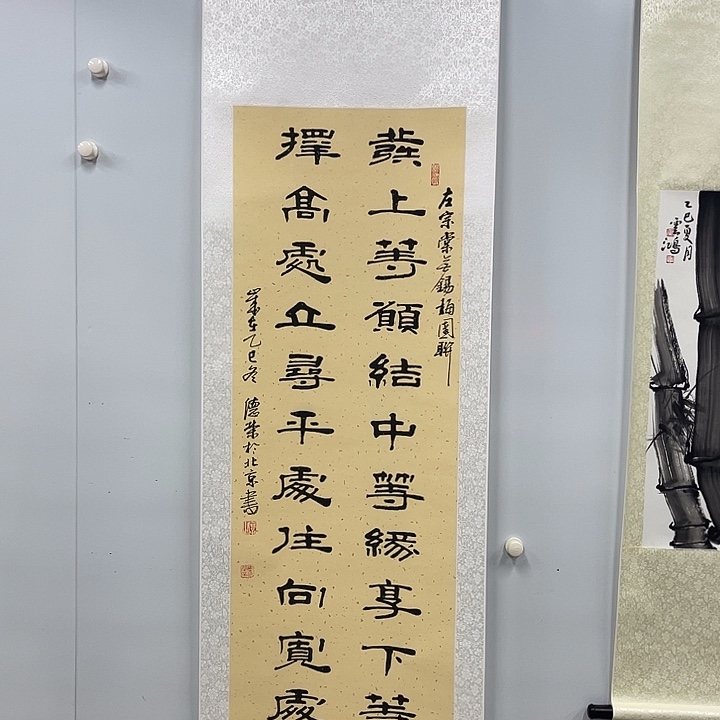 左宗棠无锡梅园联
發上等願結中等緣享下等
擇高處立尋平處住向寬處
歲在乙巳冬 德荣於北京書
乙巳夏月
雲鴻